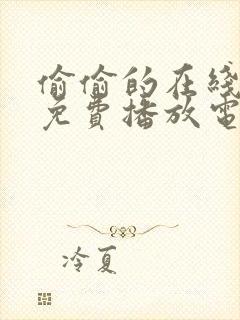 偷偷的在线
免費播放電
冷夏